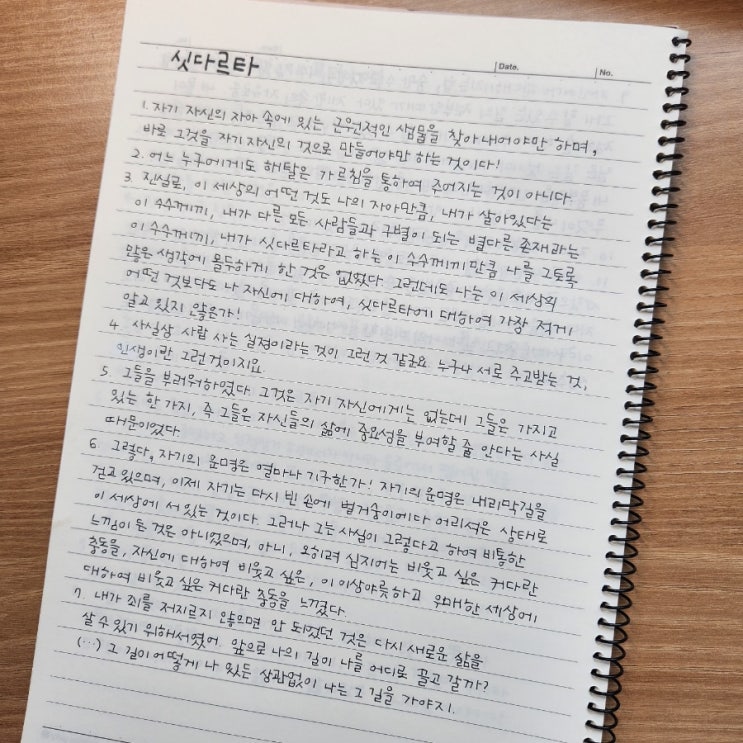 싯다르타
Date.
No.
1. 자기 자신의 자아 속에 있는 근원적인 샘물을 찾아내어야만 하며,
바로 그것을 자기 자신의 것으로 만들어야만 하는 것이다!
2. 어느 누구에게도 해탈은 가르침을 통하여 주어지는 것이 아니다.
3. 진실로, 이 세상의 어떤 것도 나의 자아만큼, 내가 살아있다는
이 수수께끼, 내가 다른 모든 사람들과 구별이 되는 별다른 존재라는
이 수수께끼, 내가 싯다르타라고 하는 이 수수께끼만큼 나를 그토록
많은 생각에 몰두하게 한 것은 없었다. 그런데도 나는 이 세상의
어떤 것보다도 나 자신에 대하여, 싯다르타에 대하여 가장 적게
알고 있지 않은가!
4. 사실상 사람 사는 실정이라는 것이 그런 것 같군요. 누구나 서로 주고받는 것,
인생이란 그런 것이지요.
5. 그들을 부러워하였다. 그것은 자기 자신에게는 없는데 그들은 가지고
있는 한 가지, 즉 그들은 자신들의 삶에 중요성을 부여할 줄 안다는 사실
때문이었다.
6. 그렇다, 자기의 운명은 얼마나 기구한가! 자기의 운명은 내리막길을
걷고 있으며, 이제 자기는 다시 빈 손에 벌거숭이에다 어리석은 상태로
이 세상에 서 있는 것이다. 그러나 그는 사실이 그렇다고 하여 비통한
느낌이 든 것은 아니었으며, 아니, 오히려 심지어는 비웃고 싶은 커다란
충동을, 자신에 대하여 비웃고 싶은, 이 이상야릇하고 우매한 세상에
대하여 비웃고 싶은 커다란 충동을 느꼈다.
7. 내가 죄를 저지르지 않으면 안 되었던 것은 다시 새로운 삶을
살 수 있기 위해서였어. 앞으로 나의 길이 나를 어디로 끌고 갈까?
(…) 그 길이 어떻게 나 있든 상관없이 나는 그 길을 가야지.